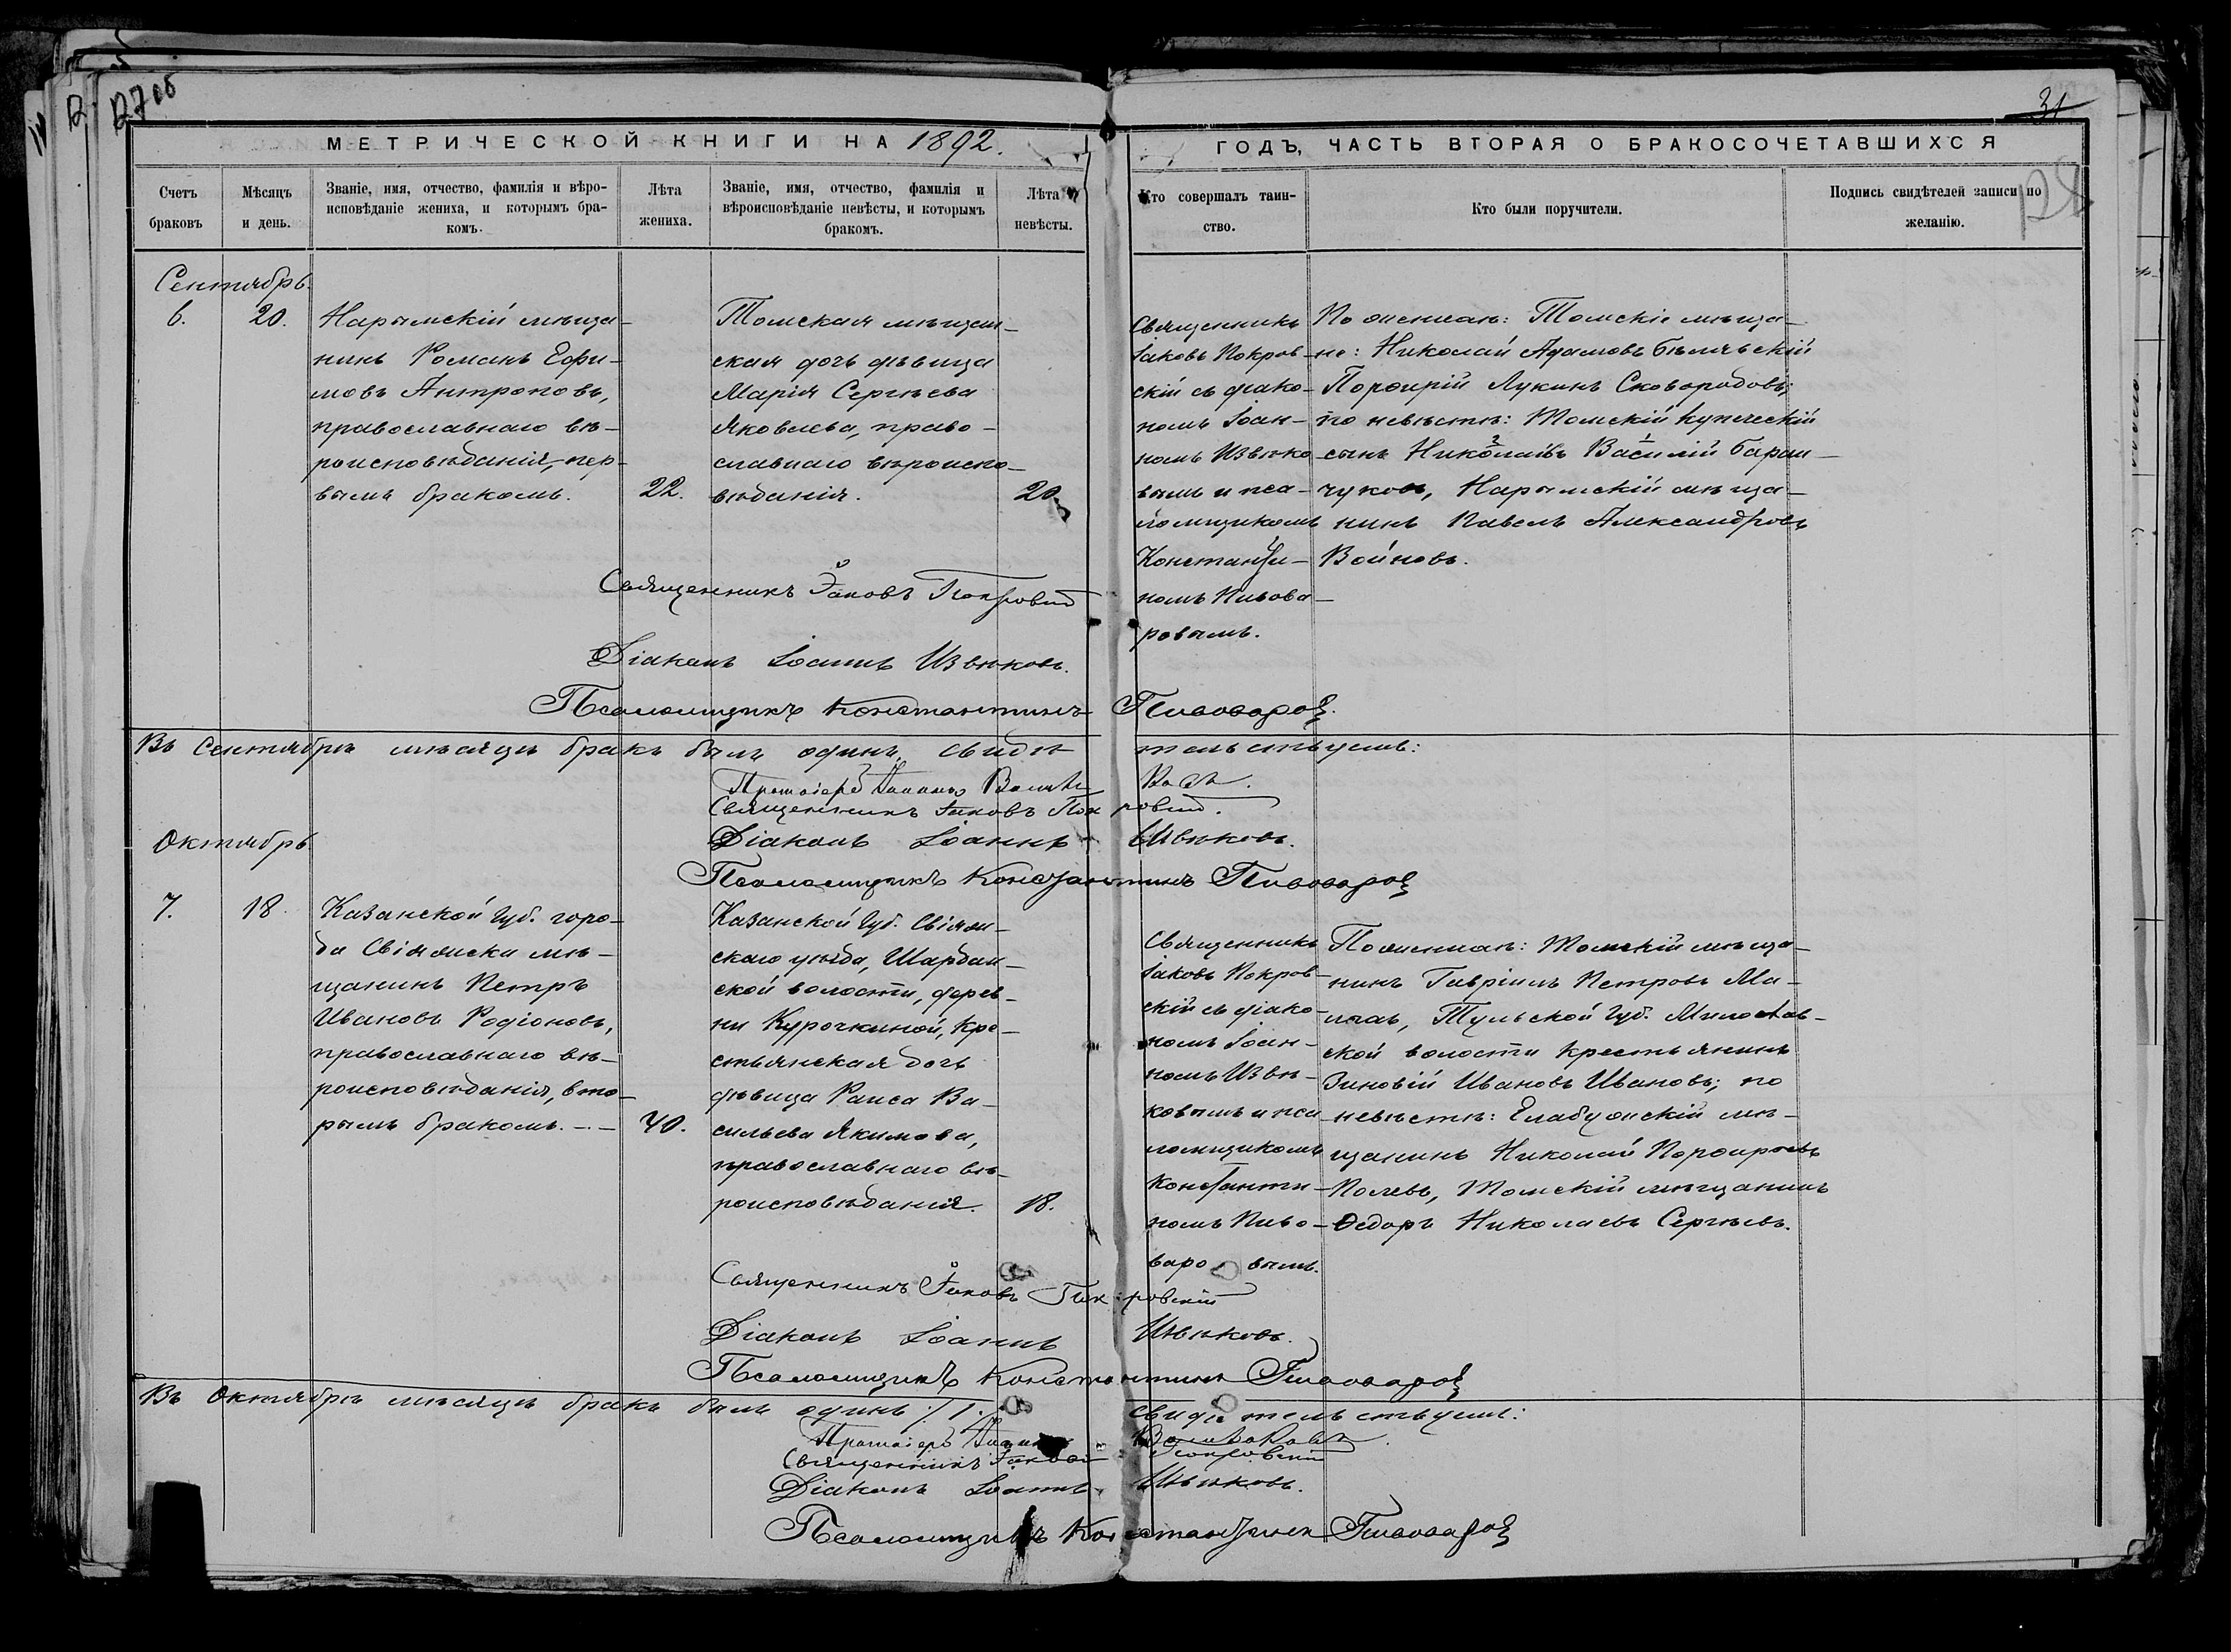 31
МЕТРИЧЕСКОЙ КНИГИ НА 1892.
ГОДЪ, ЧАСТЬ ВТОРАЯ О БРАКОСОЧЕТАВШИХСЯ
Счетъ браковъ
Мѣсяцъ и день.
Званіе, имя, отчество, фамилія и вѣро-
исповѣданіе жениха, и которымъ бра-
комъ.
Лѣта жениха.
Званіе, имя, отчество, фамилія и
вѣроисповѣданіе невѣсты, и которымъ
бракомъ.
Лѣта невѣсты.
Кто совершалъ таин-
ство.
Кто были поручители.
Подпись свидѣтелей записи по
желанію.
Сентябрь.
6.
20.
Нарымскій мѣща-
нинъ Романъ Ефи-
мовъ Антроповъ,
православнаго вѣ-
роисповѣданія, пер-
вымъ бракомъ.
22.
Томская мѣщан-
ская дочь дѣвица
Марія Сергѣева
Яковлева, право-
славнаго вѣроиспо-
вѣданія.
20
Священникъ
Іаковъ Покров-
скій съ діако-
номъ Іоан-
номъ Извѣко-
вымъ и пса-
ломщикомъ
Константи-
номъ Пивова-
ровымъ.
По женихѣ: Томскіе мѣща-
не: Николай Адамовъ
Порфирій Лукинъ Сковородовъ;
по невѣстѣ: Томскій купеческій
сынъ Николаевъ Василій Баран-
чуковъ, Нарымскій мѣща-
нинъ Павелъ Александровъ
Войновъ.
Священникъ Іаковъ Покровскій
Діаконъ Іоаннъ Извѣковъ.
Псаломщикъ Константинъ Пивоваровъ
Въ Сентябрѣ мѣсяцѣ бракъ былъ одинъ, свидѣтельствуемъ:
Протоіерей
Священникъ Іаковъ Покровскій.
Діаконъ Іоаннъ Извѣковъ.
Псаломщикъ Константинъ Пивоваровъ
Октябрь.
7.
18.
Казанской губ. горо-
да Свіяжска мѣ-
щанинъ Петръ
Ивановъ Родіоновъ,
православнаго вѣ-
роисповѣданія, вто-
рымъ бракомъ. - -
40.
Казанской губ. Свіяж-
скаго уѣзда, Шардан-
ской волости, дерев-
ни Курочкиной, кре-
стьянская дочь
дѣвица Раиса Ва-
сильева Якимова,
православнаго вѣ-
роисповѣданія.
18.
Священникъ
Іаковъ Покров-
скій съ діако-
номъ Іоан-
номъ Извѣ-
ковымъ и пса-
ломщикомъ
Константи-
номъ Пиво-
варовымъ.
По женихѣ: Томскій мѣща-
нинъ Гавріилъ Петровъ
Тульской губ. Милослав-
ской волости крестьянинъ
Зиновій Ивановъ Ивановъ; по
невѣстѣ: Елабужскій мѣ-
щанинъ Николай Порфировъ
Полевъ, Томскій мѣщанинъ
Ѳедоръ Николаевъ Сергѣевъ.
Священникъ Іаковъ Покровскій
Діаконъ Іоаннъ Извѣковъ.
Псаломщикъ Константинъ Пивоваровъ
Въ Октябрѣ мѣсяцѣ бракъ былъ одинъ /1./ свидѣтельствуемъ:
Протоіерей
Священникъ Іаковъ Покровскій
Діаконъ Іоаннъ Извѣковъ.
Псаломщикъ Константинъ Пивоваровъ